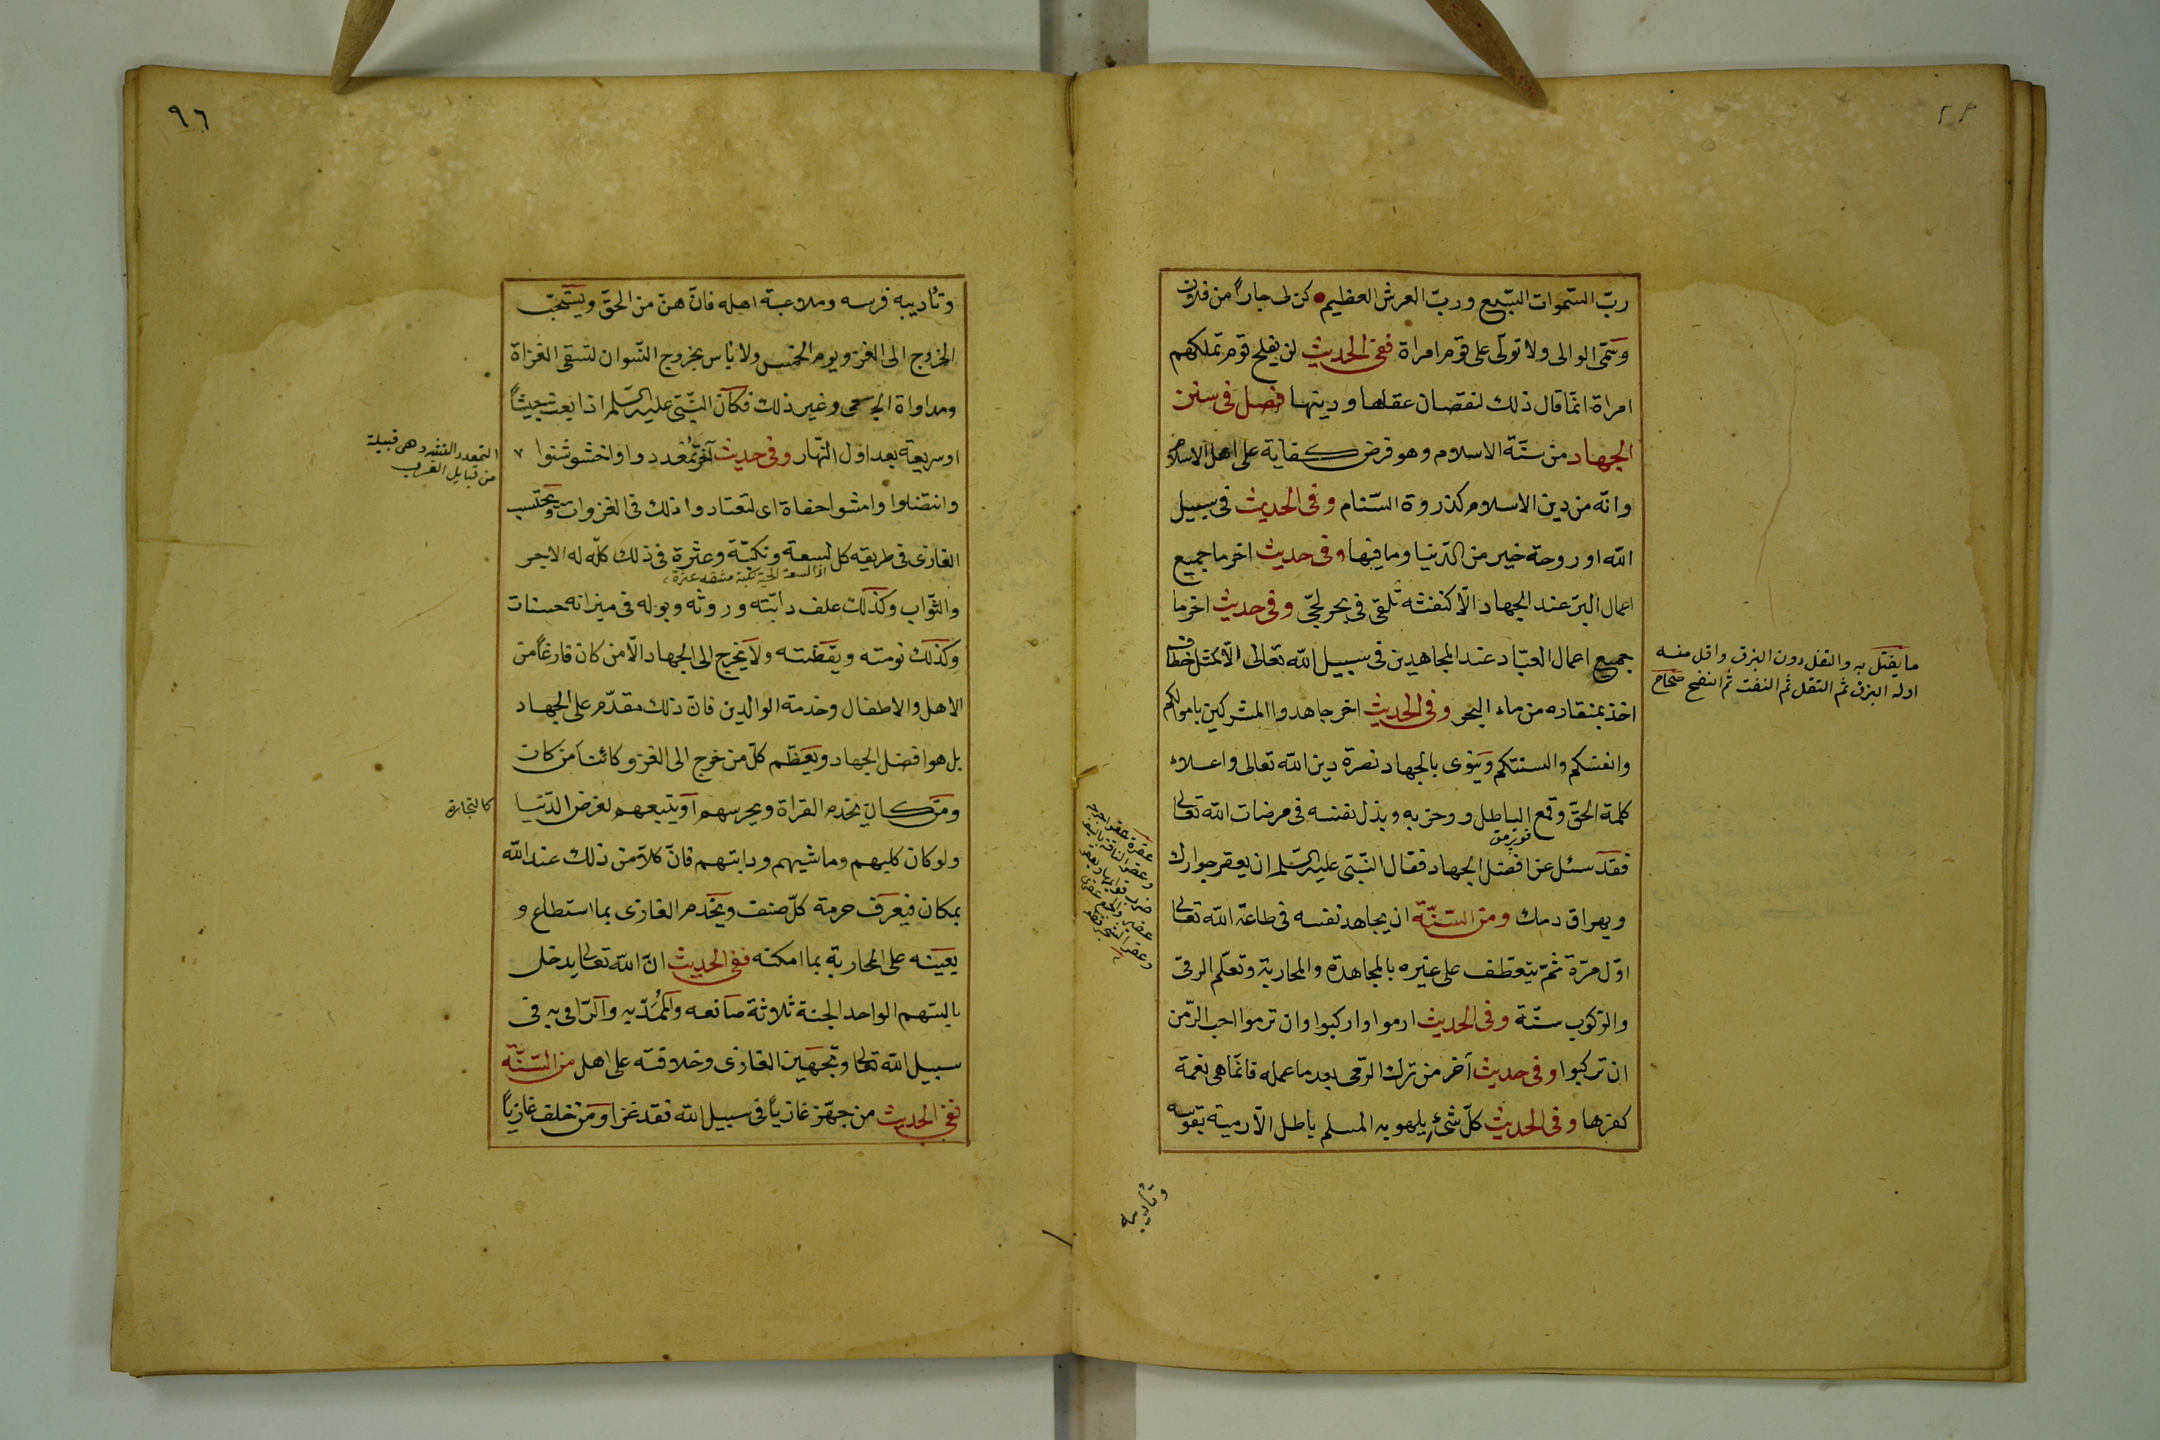 ربّ السّموات السّبع وربّ العرش العظيم كن لى جاراً من فلان
وسمّى الوالى ولا تولّى على قوم امراة ففى الحديث لن يفلح قوم تملكهم
امراة انّما قال ذلك لنقصان عقلها ودينها فصل فى سنن
الجهاد من سنّة الاسلام وهو فرض كفاية على اهل الاسلام
وانّه من دين الاسلام كذروة السّنام وفى الحديث فى سبيل
الله او روحة خير من الدّنيا وما فيها وفى حديث اخر ما جميع
اعمال البرّ عند الجهاد الّا كنفثه تلقى فى بحر لجّى وفى حديث اخر ما
جميع اعمال العبّاد عند المجاهدين فى سبيل الله تعالى الّا كمثل خطاف
اخذ بمنقاره من ماء البحر وفى الحديث اخر جاهدوا المشركين باموالكم
وانفسكم والسنتكم وينوى بالجهاد نصرة دين الله تعالى واعلاء
كلمة الحقّ وقمع الباطل وحزبه وبذل نفسه فى مرضات الله تعالى
فقد سئل عن افضل الجهاد فقال النّبىّ عليه السّلم ان يعقر جوادك
ويهراق دمك ومن السّنّة ان يجاهد نفسه فى طاعة الله تعالى
اوّل مرّة ثمّ يتعطف على غيره بالمجاهدة والمحاربة وتعلّم الرمى
والرّكوب سنّة وفى الحديث ارموا واركبوا وان ترموا احب الىّ من
ان تركبوا وفى حديث آخر من ترك الرّمى بعد ما عمله فانّما هى نعمة
كفرها وفى الحديث كلّ شىء يلهو به المسلم باطل الّا رمية بقوسه
وتأديبه
ما يفتل به والتفل دون البزق واقل منه
اوله البزق ثم التفل ثم النفث ثم النفخ صحاح
٩٦
وتأديبه فرسه وملاعبة اهله فانّ هنّ من الحقّ ويستحبّ
الخروج الى الغزو يوم الخميس ولا بأس بخروج النّسوان لتسقى الغزاة
ومداواة الجرحى وغير ذلك فكان النّبىّ عليه السّلم اذا بعث جيشاً
او سريعة بعد اوّل النّهار وفى حديث آخر تمعددوا واخشوشنوا
وانتضلوا وامشوا حفاة اى لتعتادوا ذلك فى الغزوات ويحتسب
الغازى فى طريقه كل لسعة ونكبة وعثرة فى ذلك كلّه له الاجر
والثّواب وكذلك علف دابّته وروثه وبوله فى ميزانه حسنات
وكذلك نومته ويقظته ولا يخرج الى الجهاد الّا من كان فارغاً من
الاهل والاطفال وخدمة الوالدين فانّ ذلك مقدّم على الجهاد
بل هو افضل الجهاد ويعظّم كلّ من خرج الى الغزو كائناً من كان
ومن كان يخدم القراة ويحرسهم او يتبعهم لغرض الدّنيا
ولو كان كلبهم وماشيهم ودابتهم فانّ كلاّ من ذلك عند الله
بمكان فيعرف حرمة كلّ صنف ويخدم الغازى بما استطاع و
يعينه على المحاربة بما امكنه ففى الحديث انّ الله تعالى يدخل
بالسّهم الواحد الجنة ثلاثة صانعه والممدّ به والرّامى به فى
سبيل الله تعالى وتجهيز الغازى وخلافته على اهل من السّنّة
ففى الحديث من جهّز غازياً فى سبيل الله فقد غزا ومن خلف غازياً
التمعدد التشبه وهى قبيلة
من قبايل العرب
كالتجارة